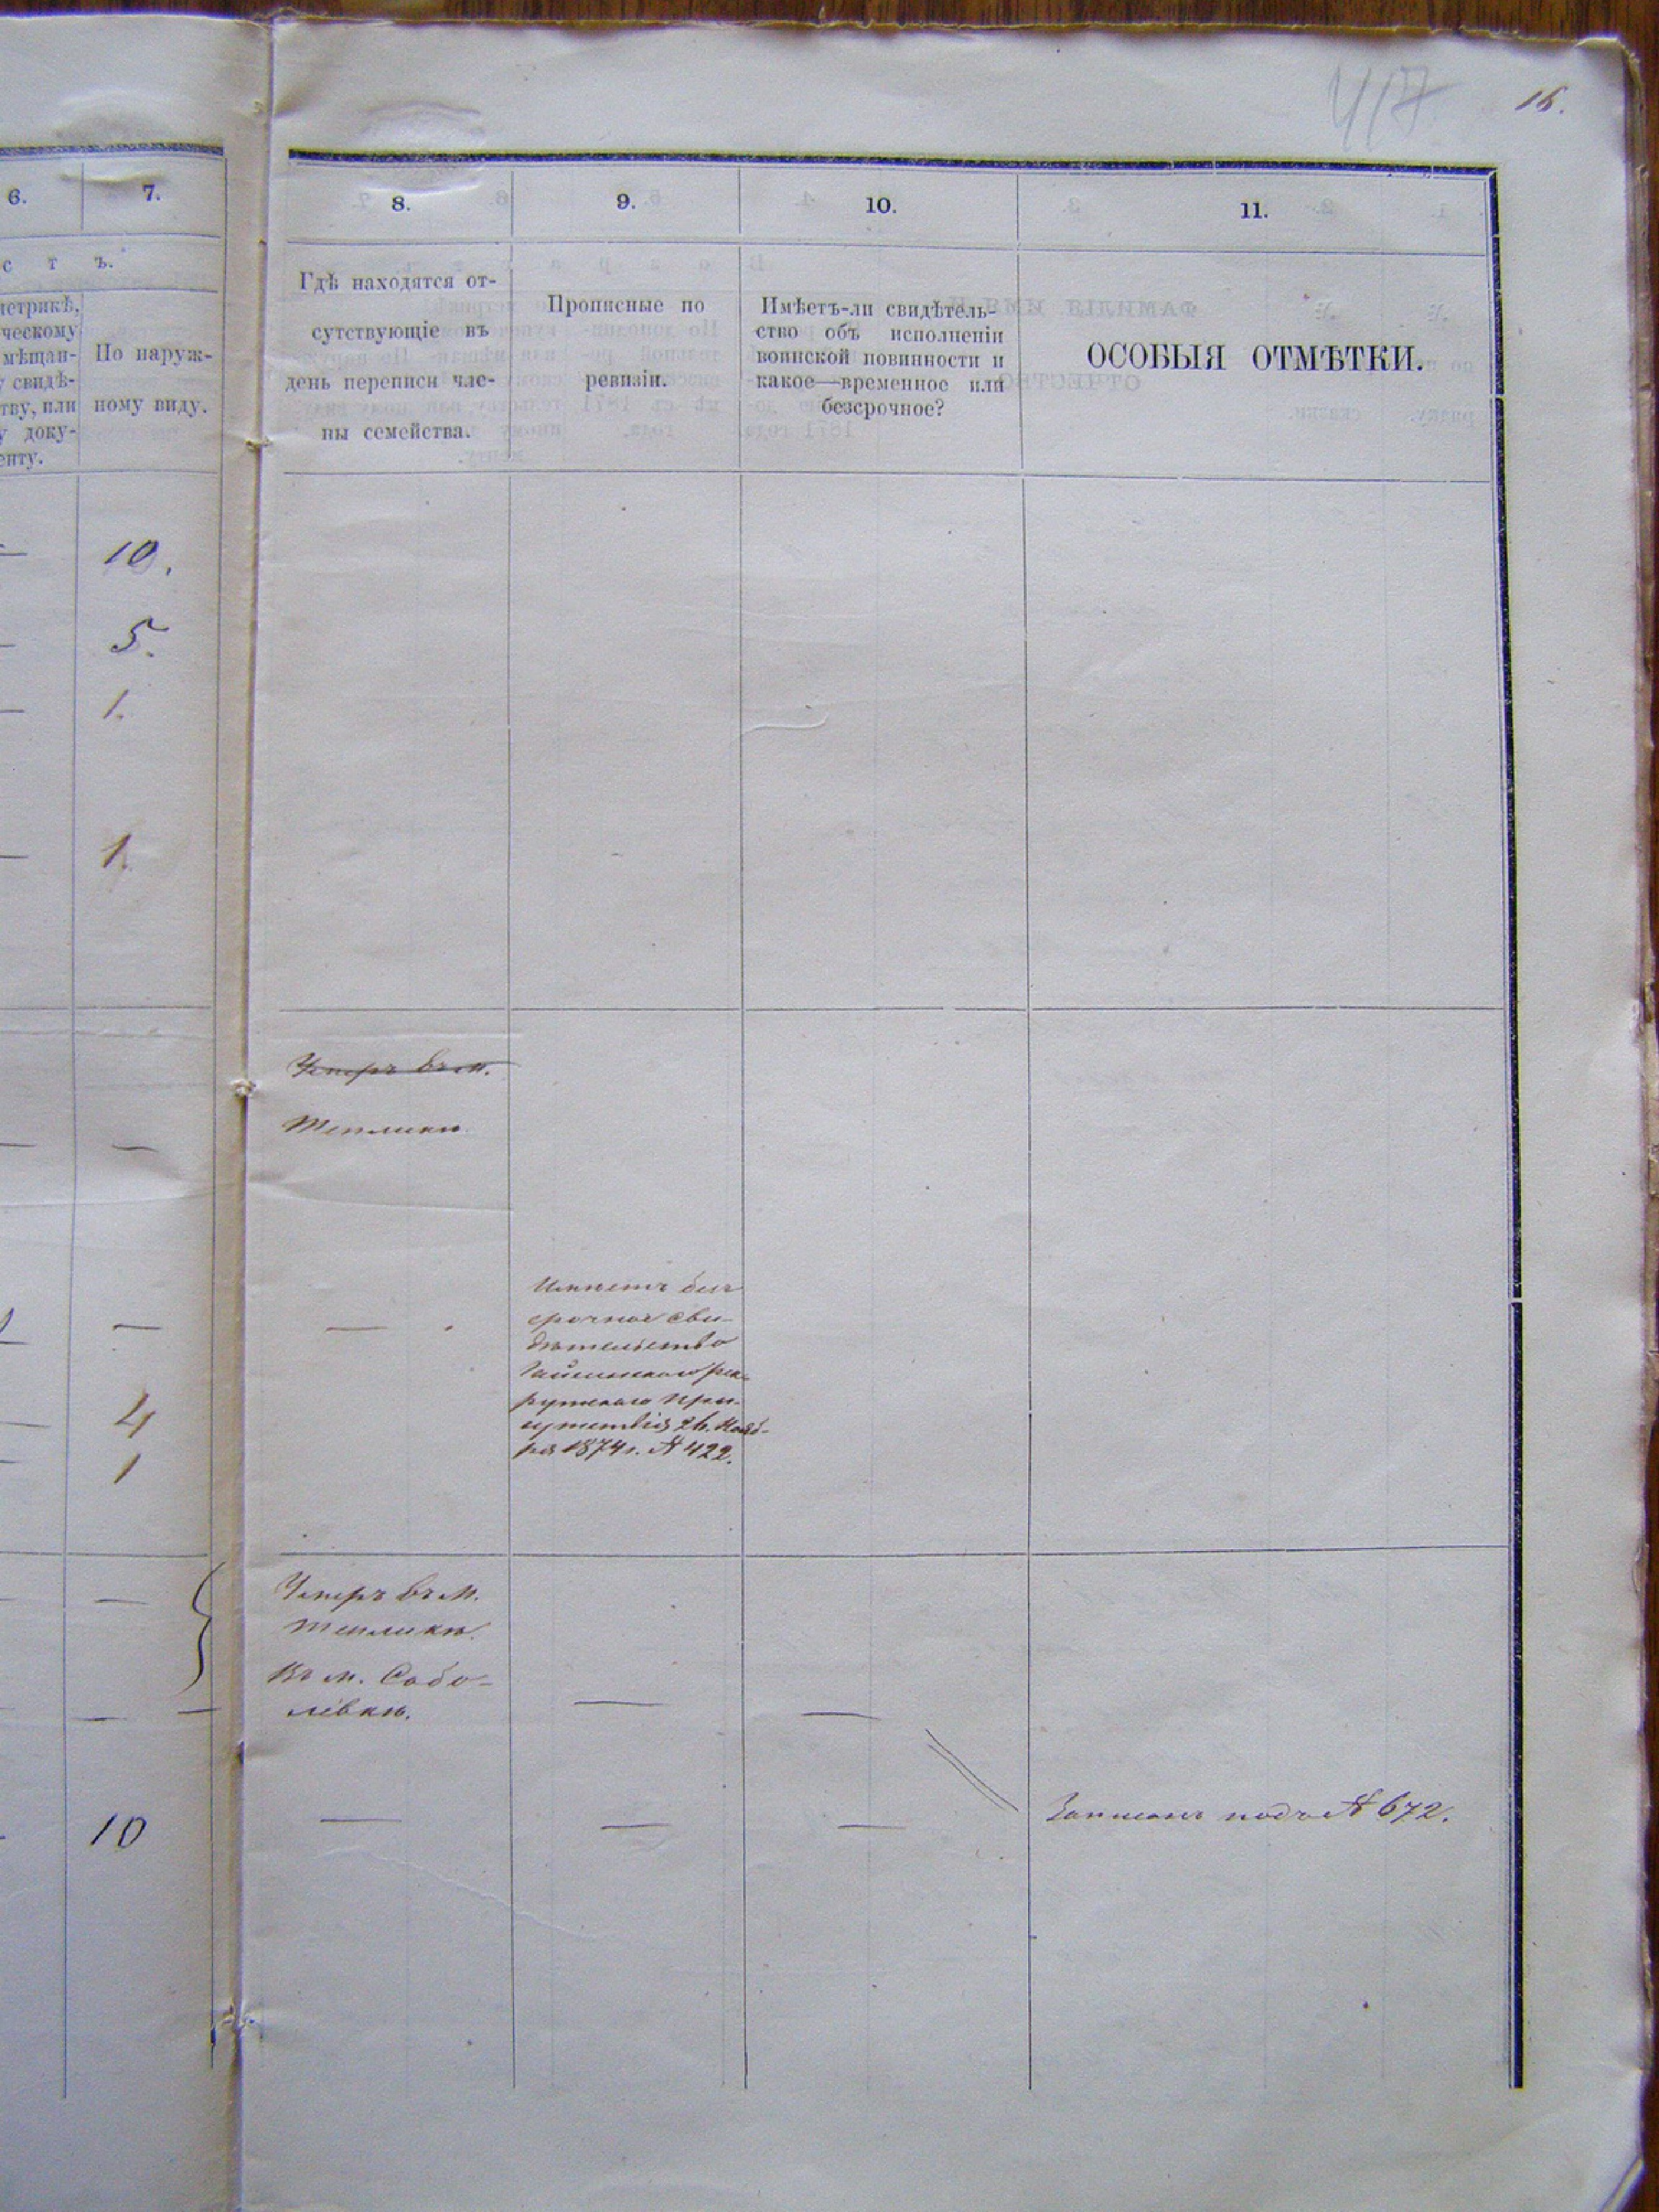 417
16.
6.
7.
8.
9.
10.
11.
с т ъ.
метрикѣ,
ческому
мѣщан-
у свидѣ-
тву, или
у доку-
енту.
По наруж-
ному виду.
Гдѣ находятся от-
сутствующіе въ
день переписи чле-
ны семейства.
Прописные по
ревизіи.
Имѣетъ-ли свидѣтель-
ство объ исполненіи
воинской повинности и
какое—временное или
безсрочное?
ОСОБЫЯ ОТМѢТКИ.
— 10.
— 5.
— 1.
— 1.
Умеръ въ м.
Тепликѣ
— —
Имѣетъ без
срочное сви-
дѣтельство
Гайсинскаго рек-
рутскаго при-
сутствія 26. Нояб-
ря 1874 г. № 422.
— —
4
1
Умеръ въ м.
Тепликѣ.
Въ м. Собо-
левкѣ.
— — — —
10 — — — Записанъ подъ № 672.